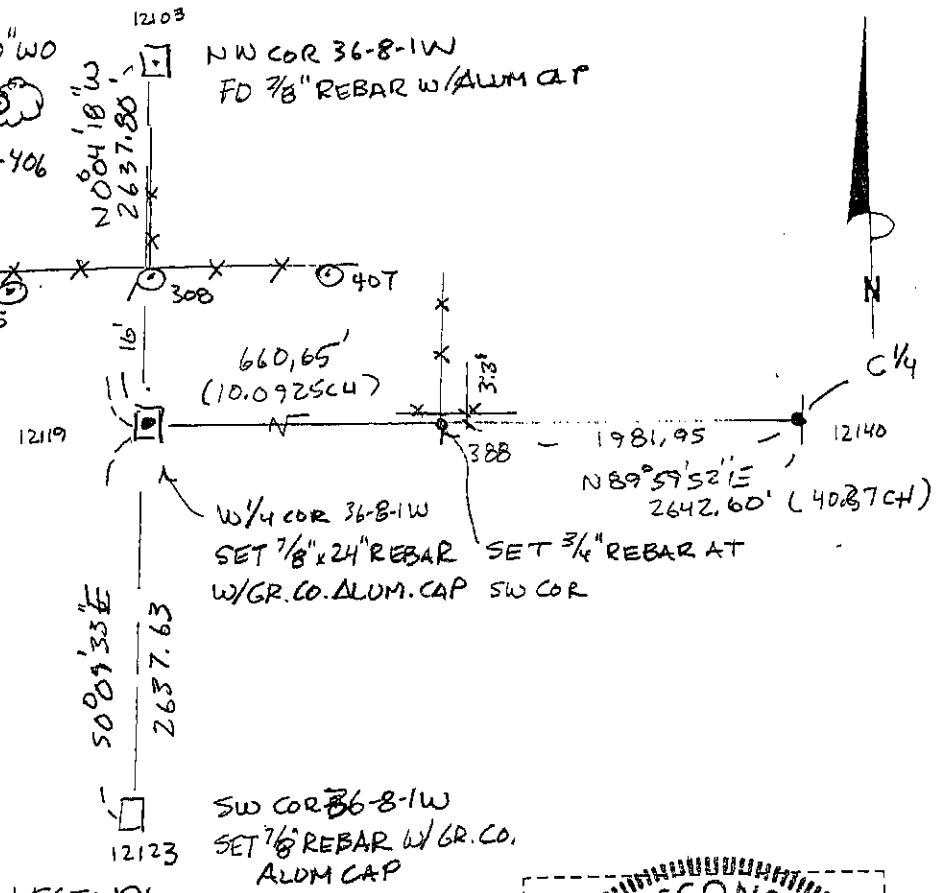 12103
"WO
NW COR 36-8-1W
FD 7/8" REBAR W/ALUM CAP
-406
N0°04'18"W
2637.80'
308
407
16'
660.65'
(10.0925CH)
3.3'
N
C 1/4
12119
388
1981.95
12140
N89°59'52"E
2642.60' (40.37CH)
W 1/4 COR 36-8-1W
SET 7/8" x 24" REBAR
W/GR.CO.ALUM.CAP
SET 3/4" REBAR AT
SW COR
S0°09'33"E
2637.63
SW COR 36-8-1W
SET 7/8" REBAR W/ GR.CO.
ALUM CAP
12123